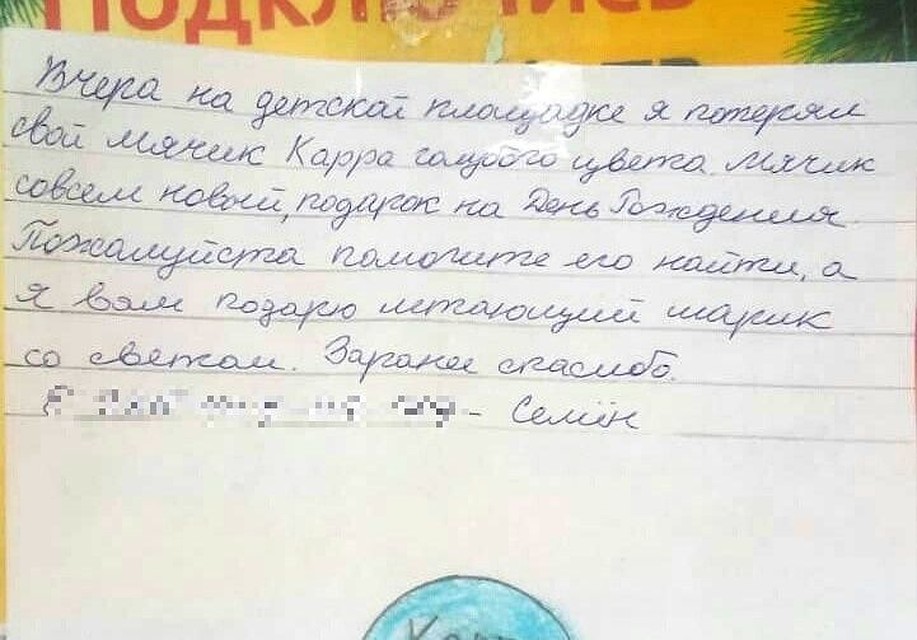 ПОДКЛЮЧИСЬ
Вчера на детской площадке я потерял
свой мячик Карра голубого цвета. Мячик
совсем новый, подарок на День Рождения.
Пожалуйста помогите его найти, а
я вам подарю летающий шарик
со светом. Заранее спасибо.
- Семён